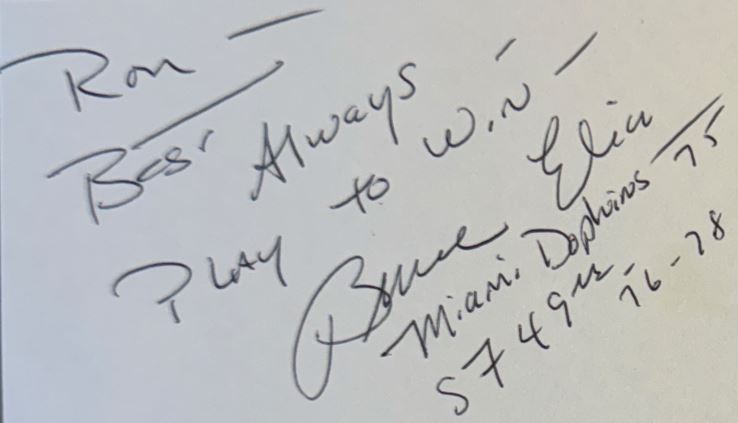 Ron —
Best Always
Play to Win -
Bruce Elia
Miami Dophins 75
SF 49ers 76-78